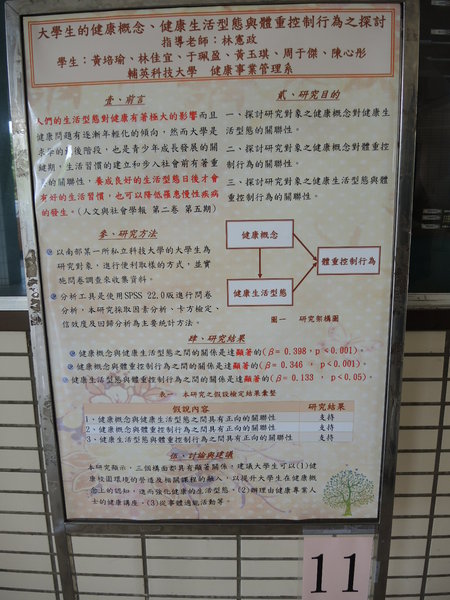 大學生的健康概念、健康生活型態與體重控制行為之探討
指導老師：林憲政
學生：黃培瑜、林佳宜、于珮盈、黃玉琪、周于傑、陳心彤
輔英科技大學 健康事業管理系
壹、前言
人們的生活型態對健康有著極大的影響而且
健康問題有逐漸年輕化的傾向，然而大學是
求學的最後階段，也是青少年成長發展的關
鍵期，生活習慣的建立和步入社會前有著重
要的關聯性，養成良好的生活型態日後才會
有好的生活習慣，也可以降低罹患慢性疾病
的發生。(人文與社會學報 第二卷 第五期)
貳、研究目的
一、探討研究對象之健康概念對健康生
活型態的關聯性。
二、探討研究對象之健康概念對體重控
制行為的關聯性。
三、探討研究對象之健康生活型態與體
重控制行為的關聯性。
參、研究方法
以南部某一所私立科技大學的大學生為
研究對象，進行便利取樣的方式，並實
施問卷調查來收集資料。
分析工具是使用SPSS 22.0版進行問卷
分析，本研究採取因素分析、卡方檢定、
信效度及迴歸分析為主要統計方法。
健康概念
體重控制行為
健康生活型態
圖一 研究架構圖
肆、研究結果
健康概念與健康生活型態之間的關係是達顯著的(β= 0.398，p <0.001)。
健康概念與體重控制行為之間的關係是達顯著的(β= 0.346，p <0.001)。
健康生活型態與體重控制行為之間的關係是達顯著的(β= 0.133，p <0.05)。
表一 本研究之假設檢定結果彙整
假說內容 研究結果
1、健康概念與健康生活型態之間具有正向的關聯性 支持
2、健康概念與體重控制行為之間具有正向的關聯性 支持
3、健康生活型態與體重控制行為之間具有正向的關聯性 支持
伍、討論與建議
本研究顯示，三個構面都具有顯著關係，建議大學生可以(1)健
康校園環境的營造及相關課程的融入，以提升大學生在健康概
念上的認知，進而強化健康的生活型態。(2)辦理由健康專業人
士的健康講座。(3)從事體適能活動等。
11